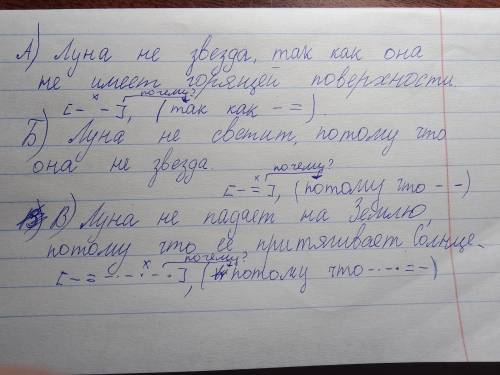 А) Луна не звезда, так как она
не имеет горящей поверхности.
почему?
[- × -], (так как - =).
Б) Луна не светит, потому что
она не звезда.
почему?
[- = ×], (потому что - -)
В) Луна не падает на Землю,
потому что её притягивает Солнце.
почему?
[- = -·-·- × -·-], (потому что -·-·- = -)